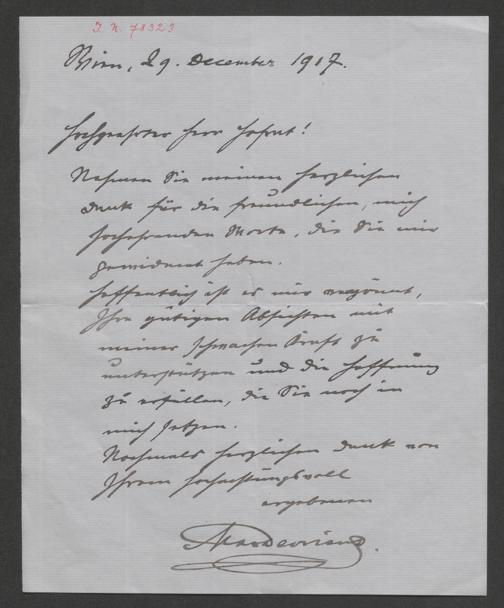 I. N. 78323
Wien, 29. December 1917.
Hochgeehrter Herr Hofrat!
Nehmen Sie meinen herzlichen
Dank für die freundlichen, mich
hochehrenden Worte, die Sie mir
gewidmet haben.
Hoffentlich ist es mir vergönnt,
Ihre gütigen Absichten mit
meiner schwachen Kraft zu
unterstützen und die Hoffnung
zu erfüllen, die Sie noch in
mich setzen.
Nochmals herzlichen Dank von
Ihrem hochachtungsvoll
ergebenen
Max Devrient.